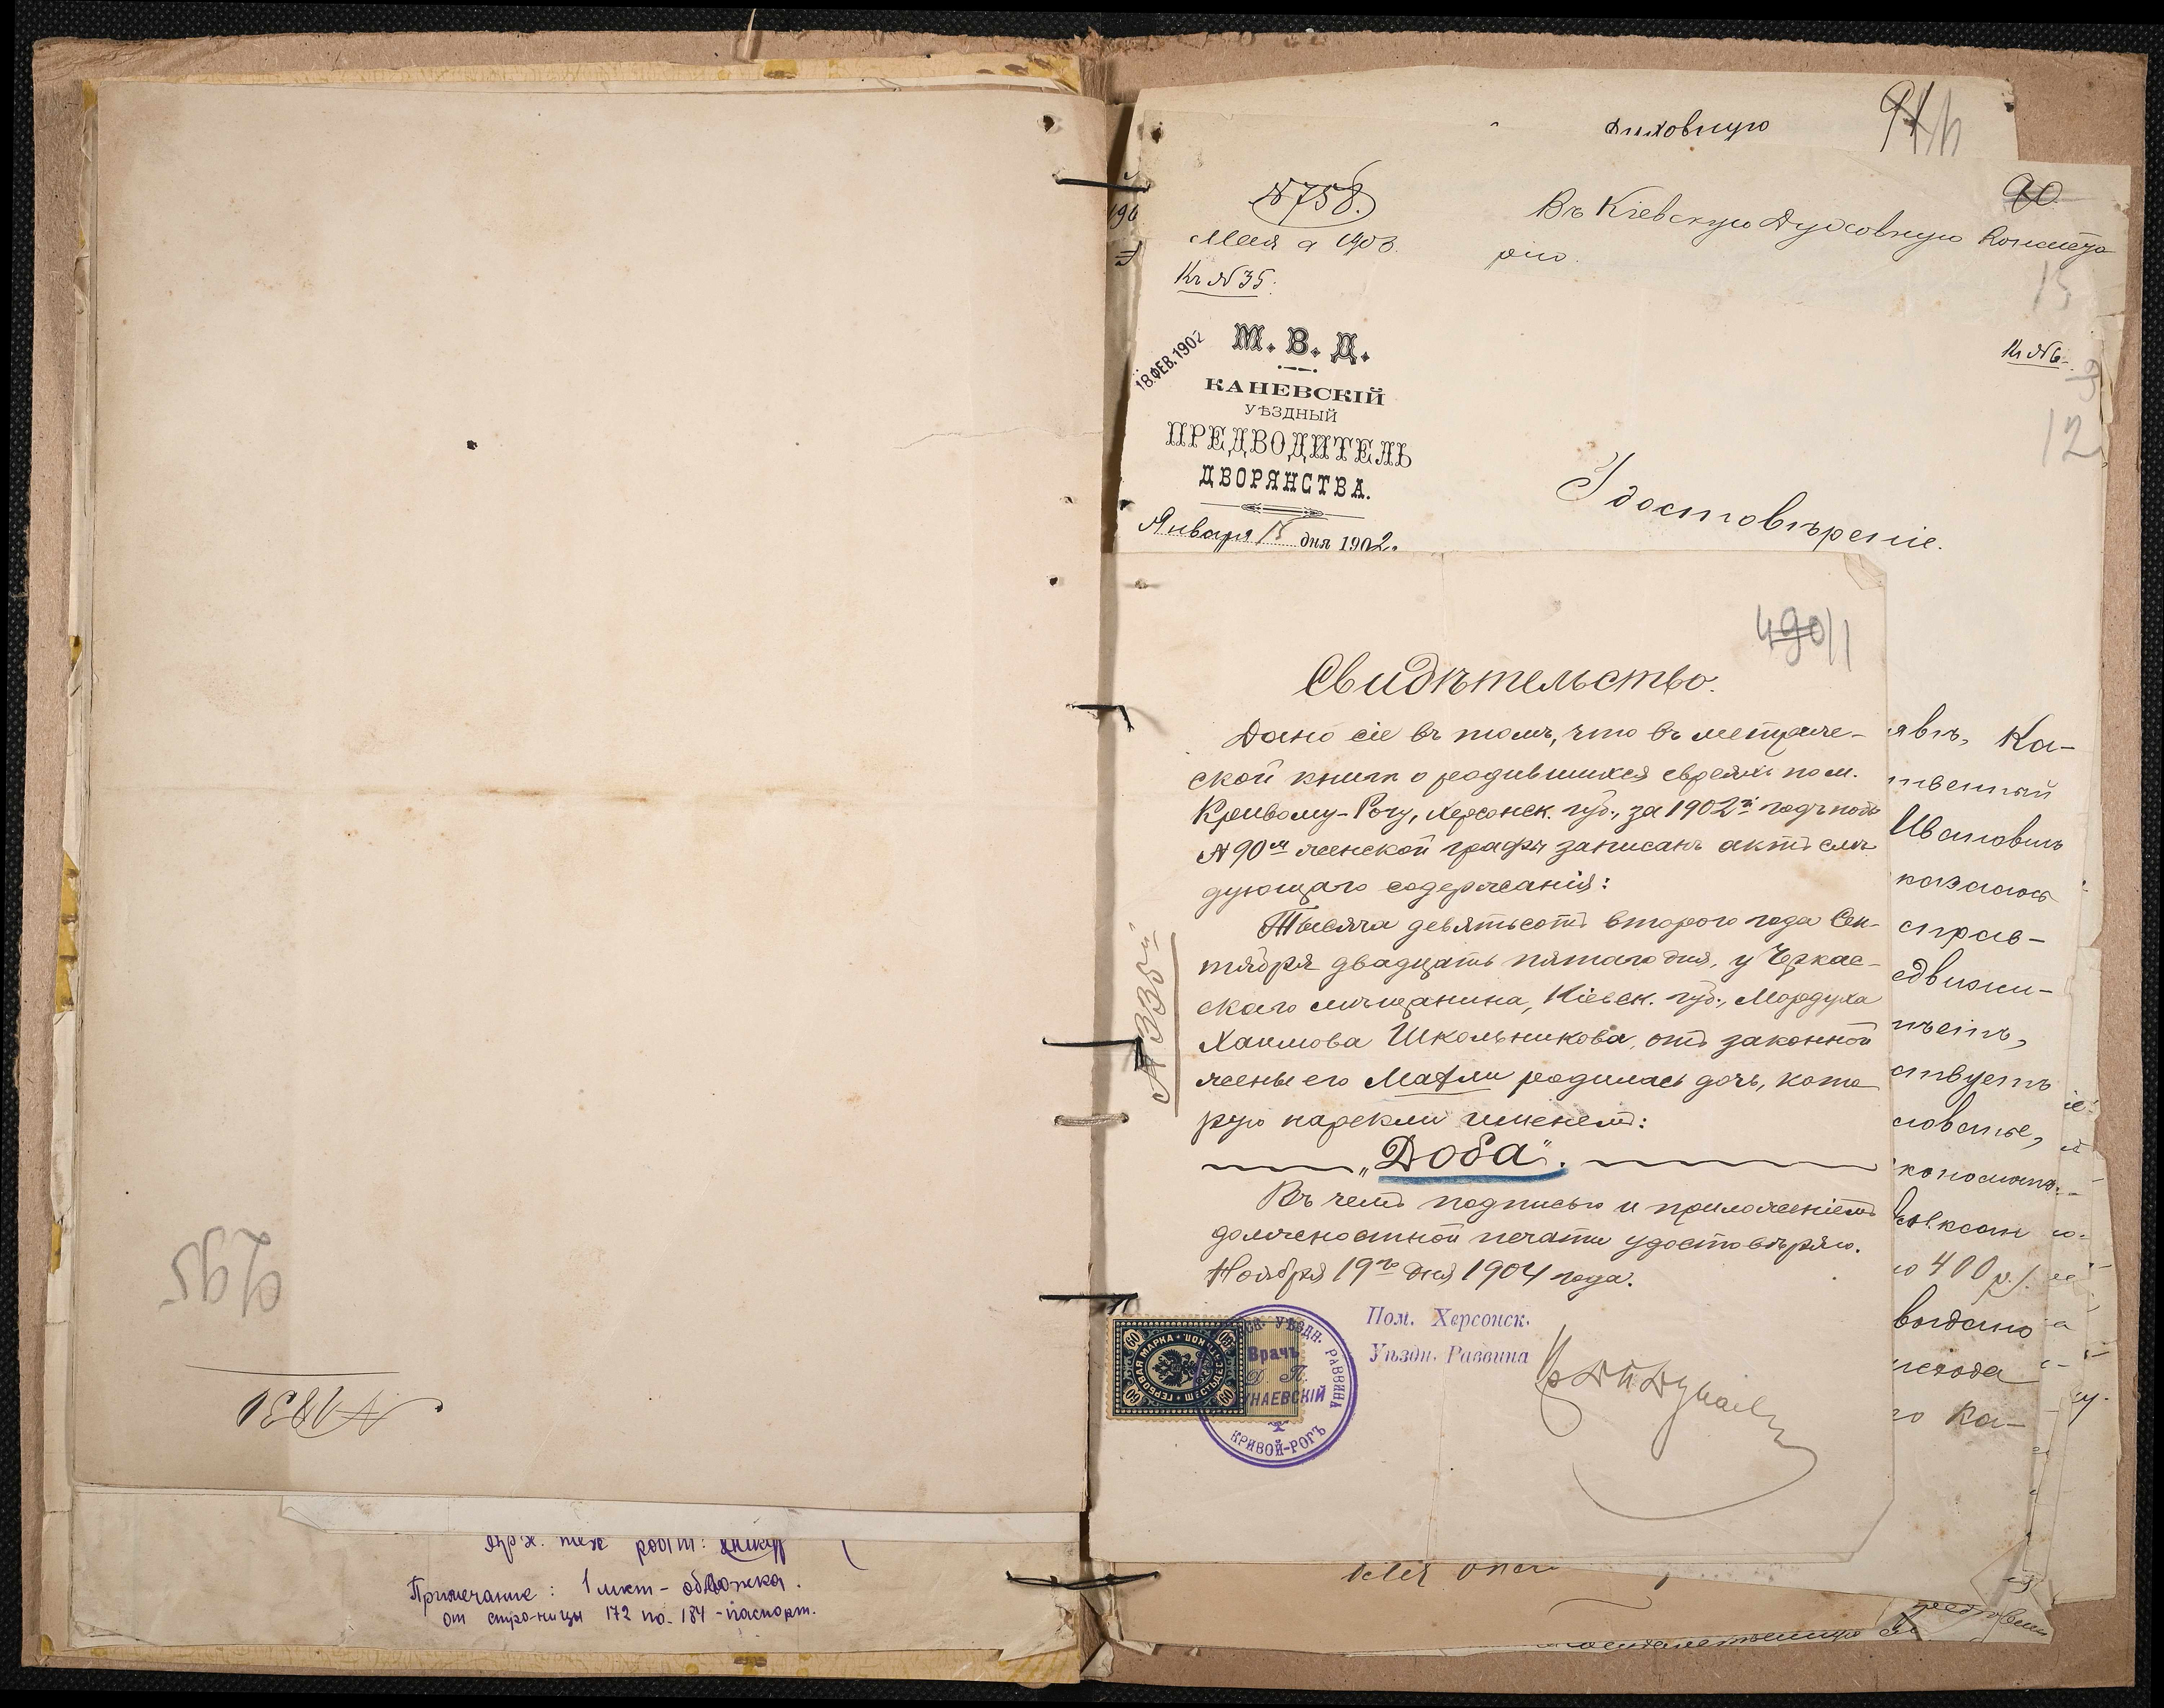 духовную
91
№ 758.
Мая 9 1903.
Къ № 35.
Въ Кіевскую Духовную Консисто
рію.
90
15
Къ № 6.
12
18.ФЕВ.1902
М. В. Д.
КАНЕВСКІЙ
УѢЗДНЫЙ
ПРЕДВОДИТЕЛЬ
ДВОРЯНСТВА.
Января 15 дня 1902.
Удостовѣреніе.
490
Свидѣтельство.
Дано сіе въ томъ, что въ метриче-
ской книгѣ о родившихся евреяхъ по м.
Кривому-Рогу, Херсонск. губ., за 1902й годъ подъ
№ 90м женской графы записанъ актъ слѣ
дующаго содержанія:
Тысяча девятьсотъ второго года Сен-
тября двадцать пятаго дня, у Черкас-
скаго мѣщанина, Кіевск. губ., Мордуха
Хаимова Школьникова, отъ законной
жены его Матли родилась дочь, кото
рую нарекли именемъ:
„Доба".
Въ чемъ подписью и приложеніемъ
должностной печати удостовѣряю.
Ноября 19го дня 1904 года.
№ 335
Пом. Херсонск.
Уѣздн. Раввина
УѢЗДН. РАВВИНА
Врачъ
Д П.
УНАЕВСКІЙ
КРИВОЙ-РОГЪ
ГЕРБОВАЯ МАРКА • ШЕСТЬДЕСЯТЪ КОП.
60 60 60 60
явъ, Ка-
твенный
Ивановичъ
казалось
справ-
движи-
ствуетъ
400 р.
выдано
го Ка-
295
№ 1831
Примечание: 1 лист - обложка.
от страницы 172 по. 184 - паспорт.